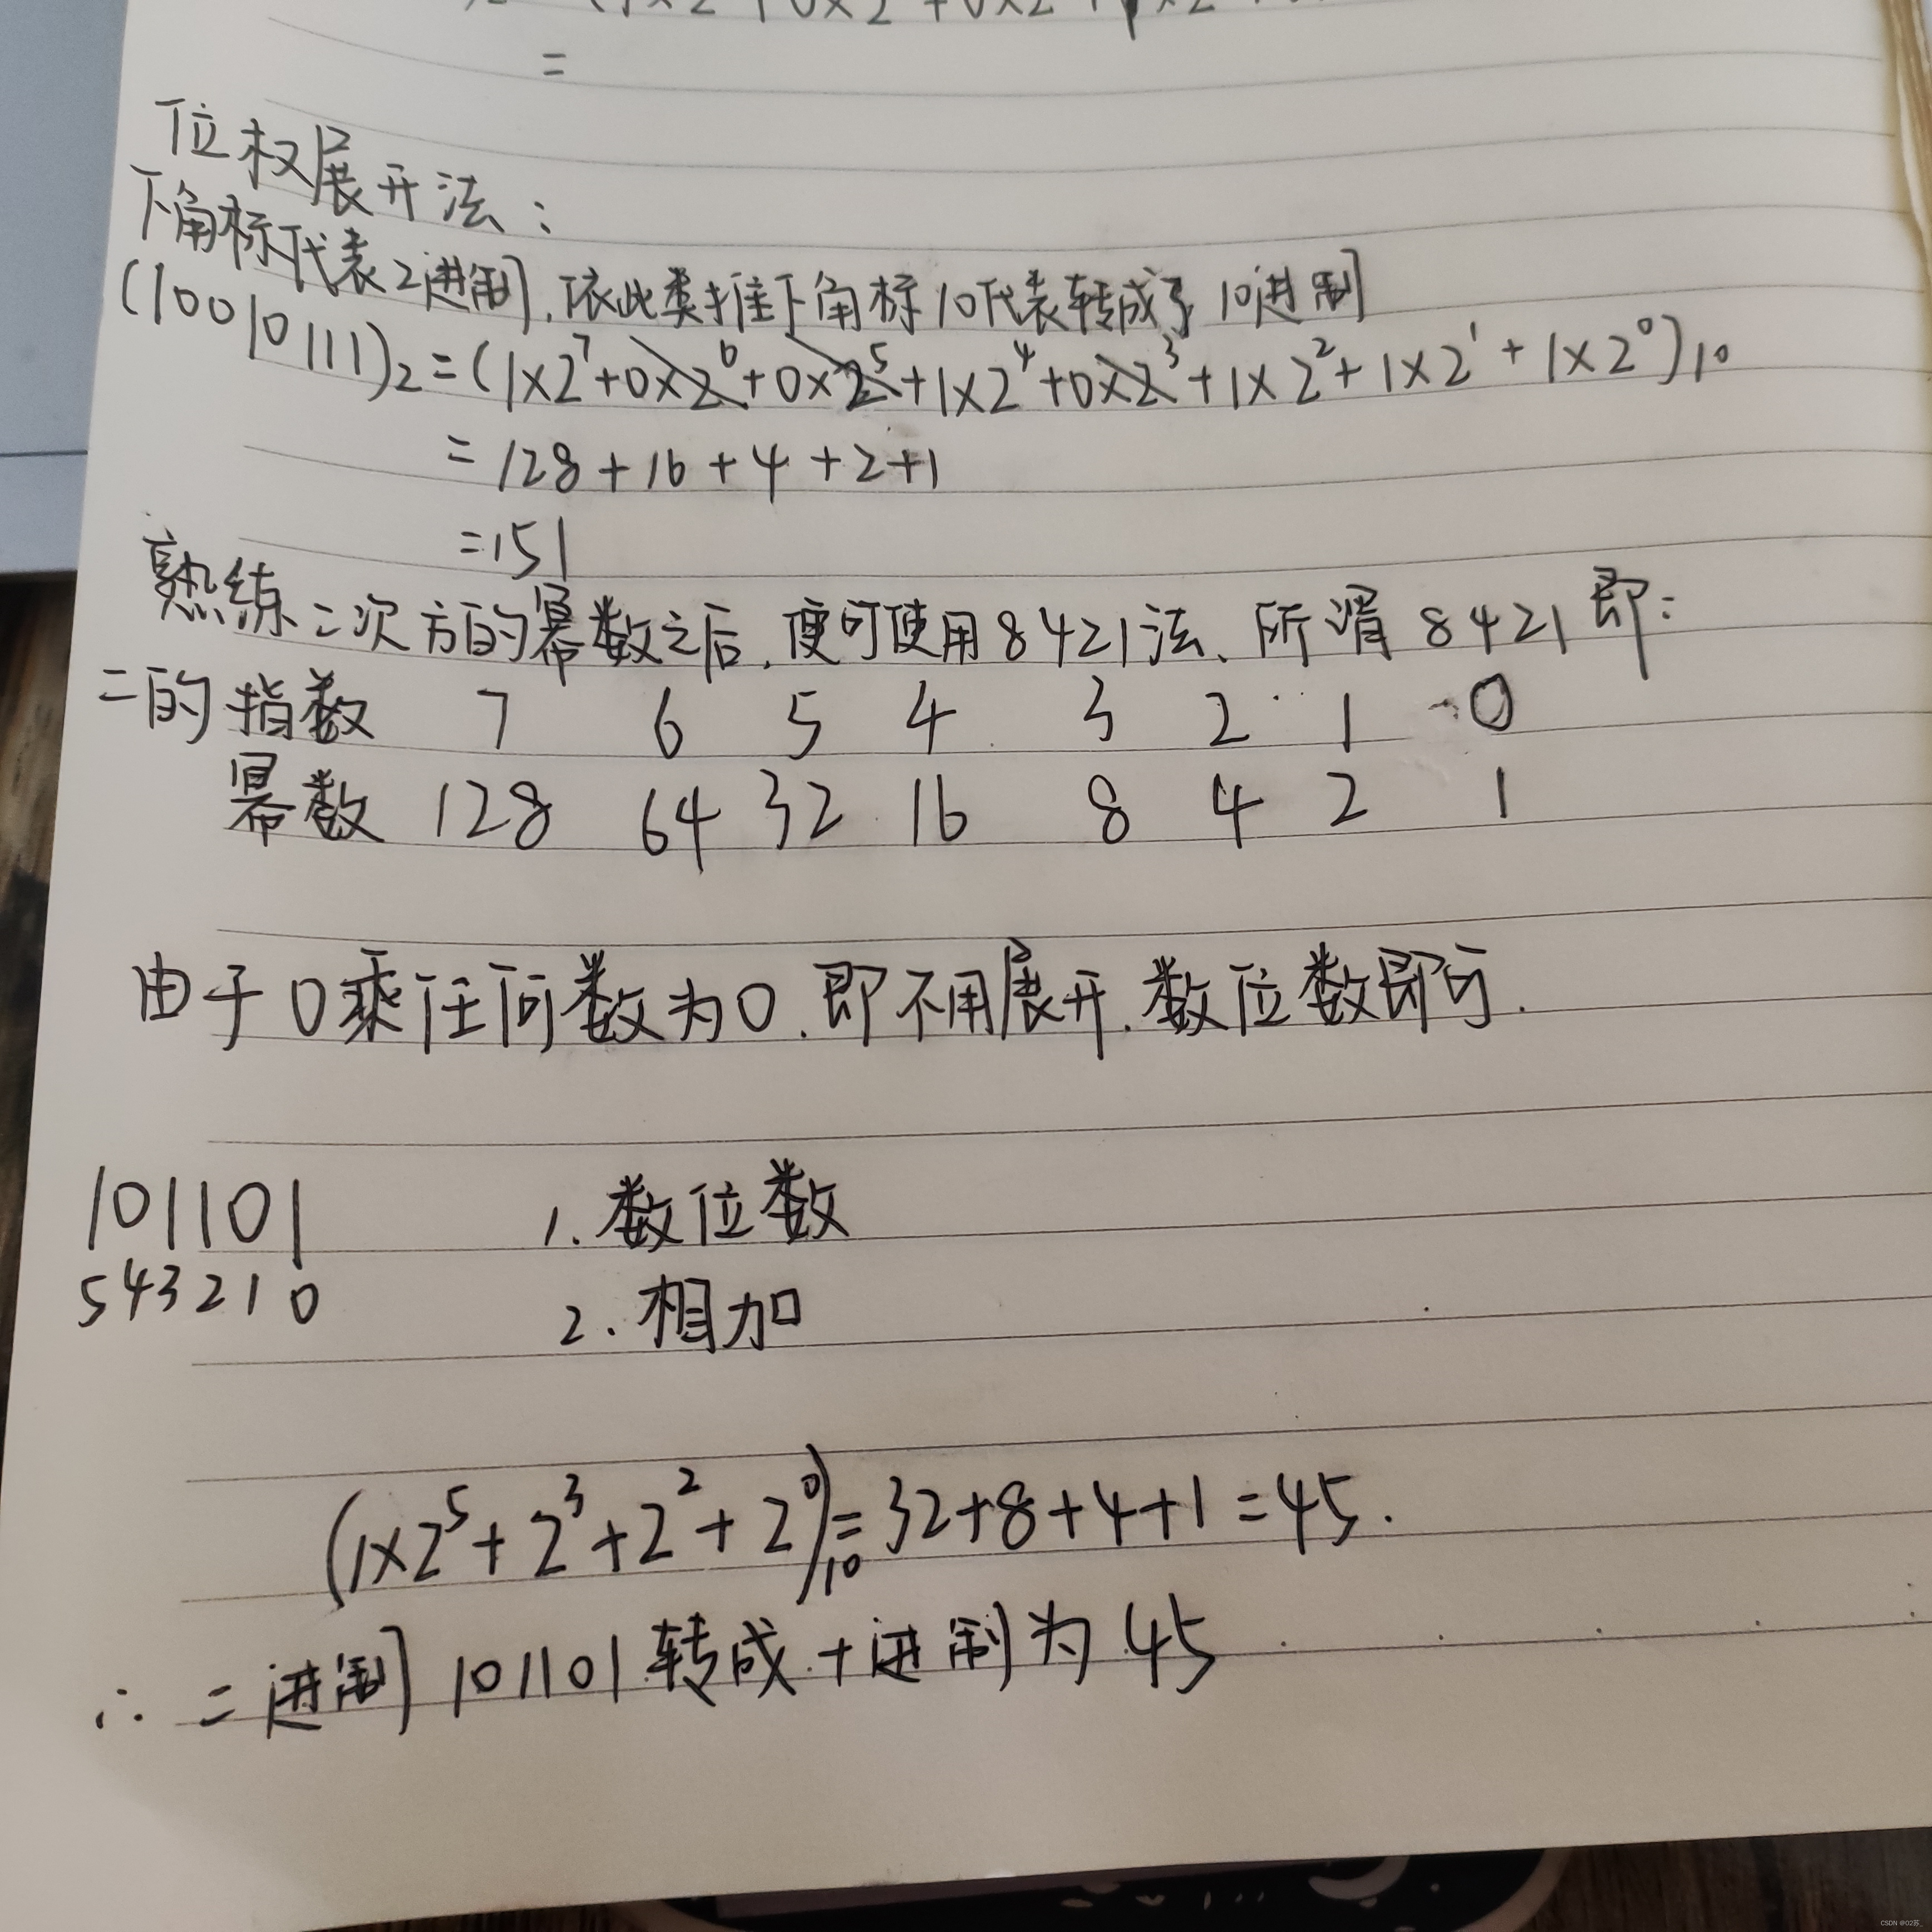 =
位权展开法：
下角标代表2进制，依此类推下角标10代表转成了10进制
(10010111)₂=(1×2⁷+0×2⁶+0×2⁵+1×2⁴+0×2³+1×2²+1×2¹+1×2⁰)₁₀
=128+16+4+2+1
=151
熟练二次方的幂数之后，便可使用8421法、所谓8421即：
二的指数 7 6 5 4 3 2 1 0
幂数 128 64 32 16 8 4 2 1
由于0乘任何数为0.即不用展开.数位数即可.
101101 1.数位数
543210 2.相加
(1×2⁵+2³+2²+2⁰)₁₀=32+8+4+1=45.
∴二进制101101转成十进制为45
CSDN @02苏_